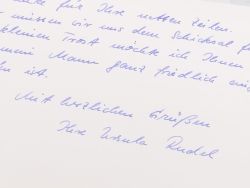 für Ihre netten Zeilen.
müssen wir uns dem Schicksal f
kleinen Trost möchte ich Ihnen
mein Mann ganz friedlich ein
ist.
Mit herzlichen Grüßen
Ihre Ursula Rudel